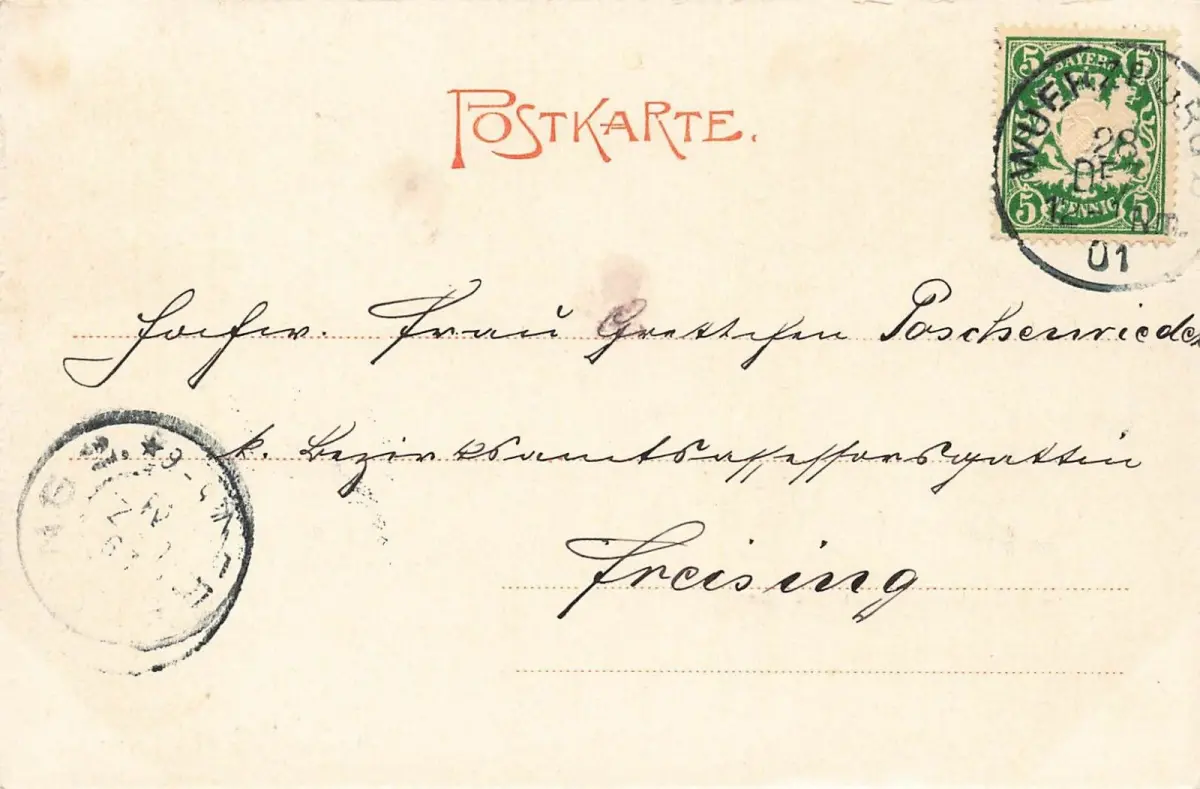 POSTKARTE.
5 BAYERN 5
5 PFENNIG 5
WUERZBURG
28
DEZ
12- Nm.
01
Hochw. Frau Grettchen Poschenrieder
k. Bezirksamtsassessorsgattin
Freising